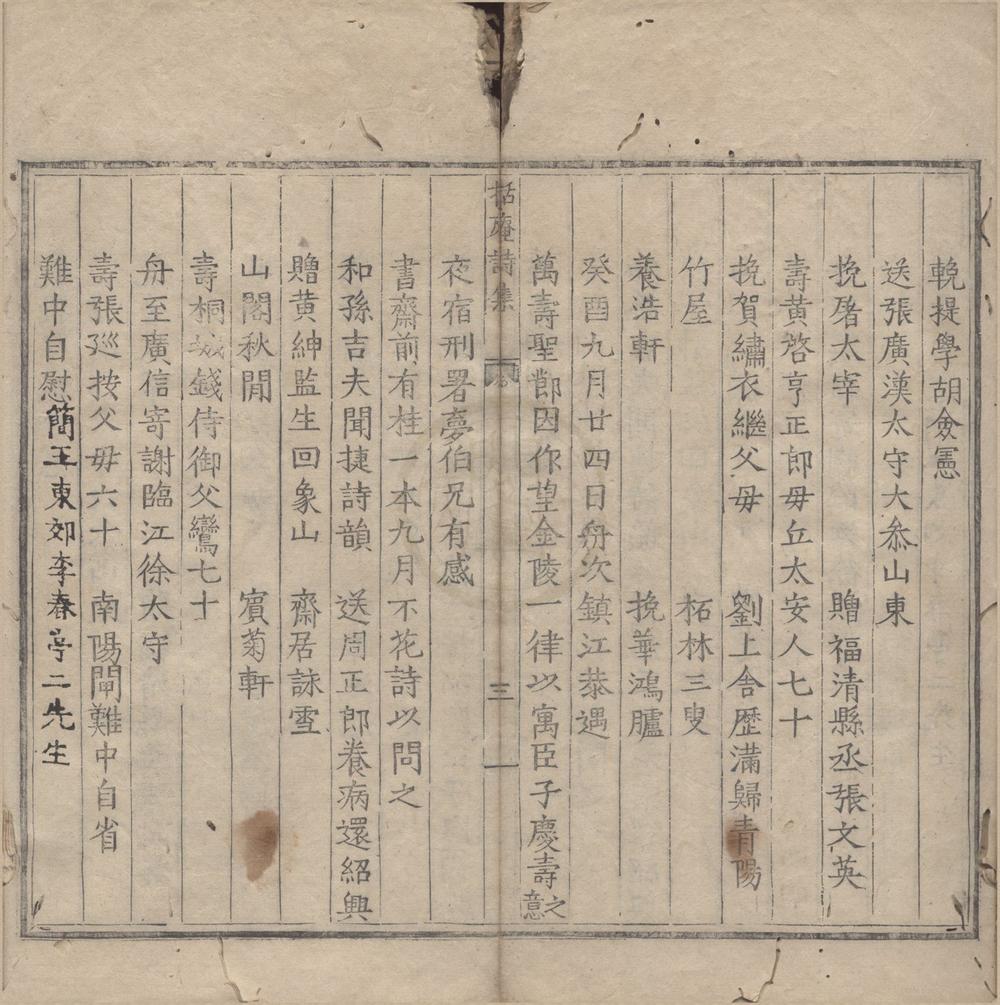 輓提學胡僉憲
送張廣漢太守大叅山東
挽屠太宰 贈福清縣丞張文英
壽黃啓亨正郎母丘太安人七十
挽賀繡衣繼父母 劉上舍歷滿歸青陽
竹屋 柘林三叟
養浩軒 挽華鴻臚
癸酉九月廿四日舟次鎮江恭遇
萬壽聖節因作望金陵一律以寓臣子慶壽之意
括庵詩集
三
夜宿刑署夢伯兄有感
書齋前有桂一本九月不花詩以問之
和孫吉夫聞捷詩韻 送周正郎養病還紹興
贈黃紳監生回象山 齋居詠雪
山閣秋閒 賓菊軒
壽桐城錢侍御父鸞七十
舟至廣信寄謝臨江徐太守
壽張廵按父母六十 南陽閘難中自省
難中自慰簡王東郊李春亭二先生